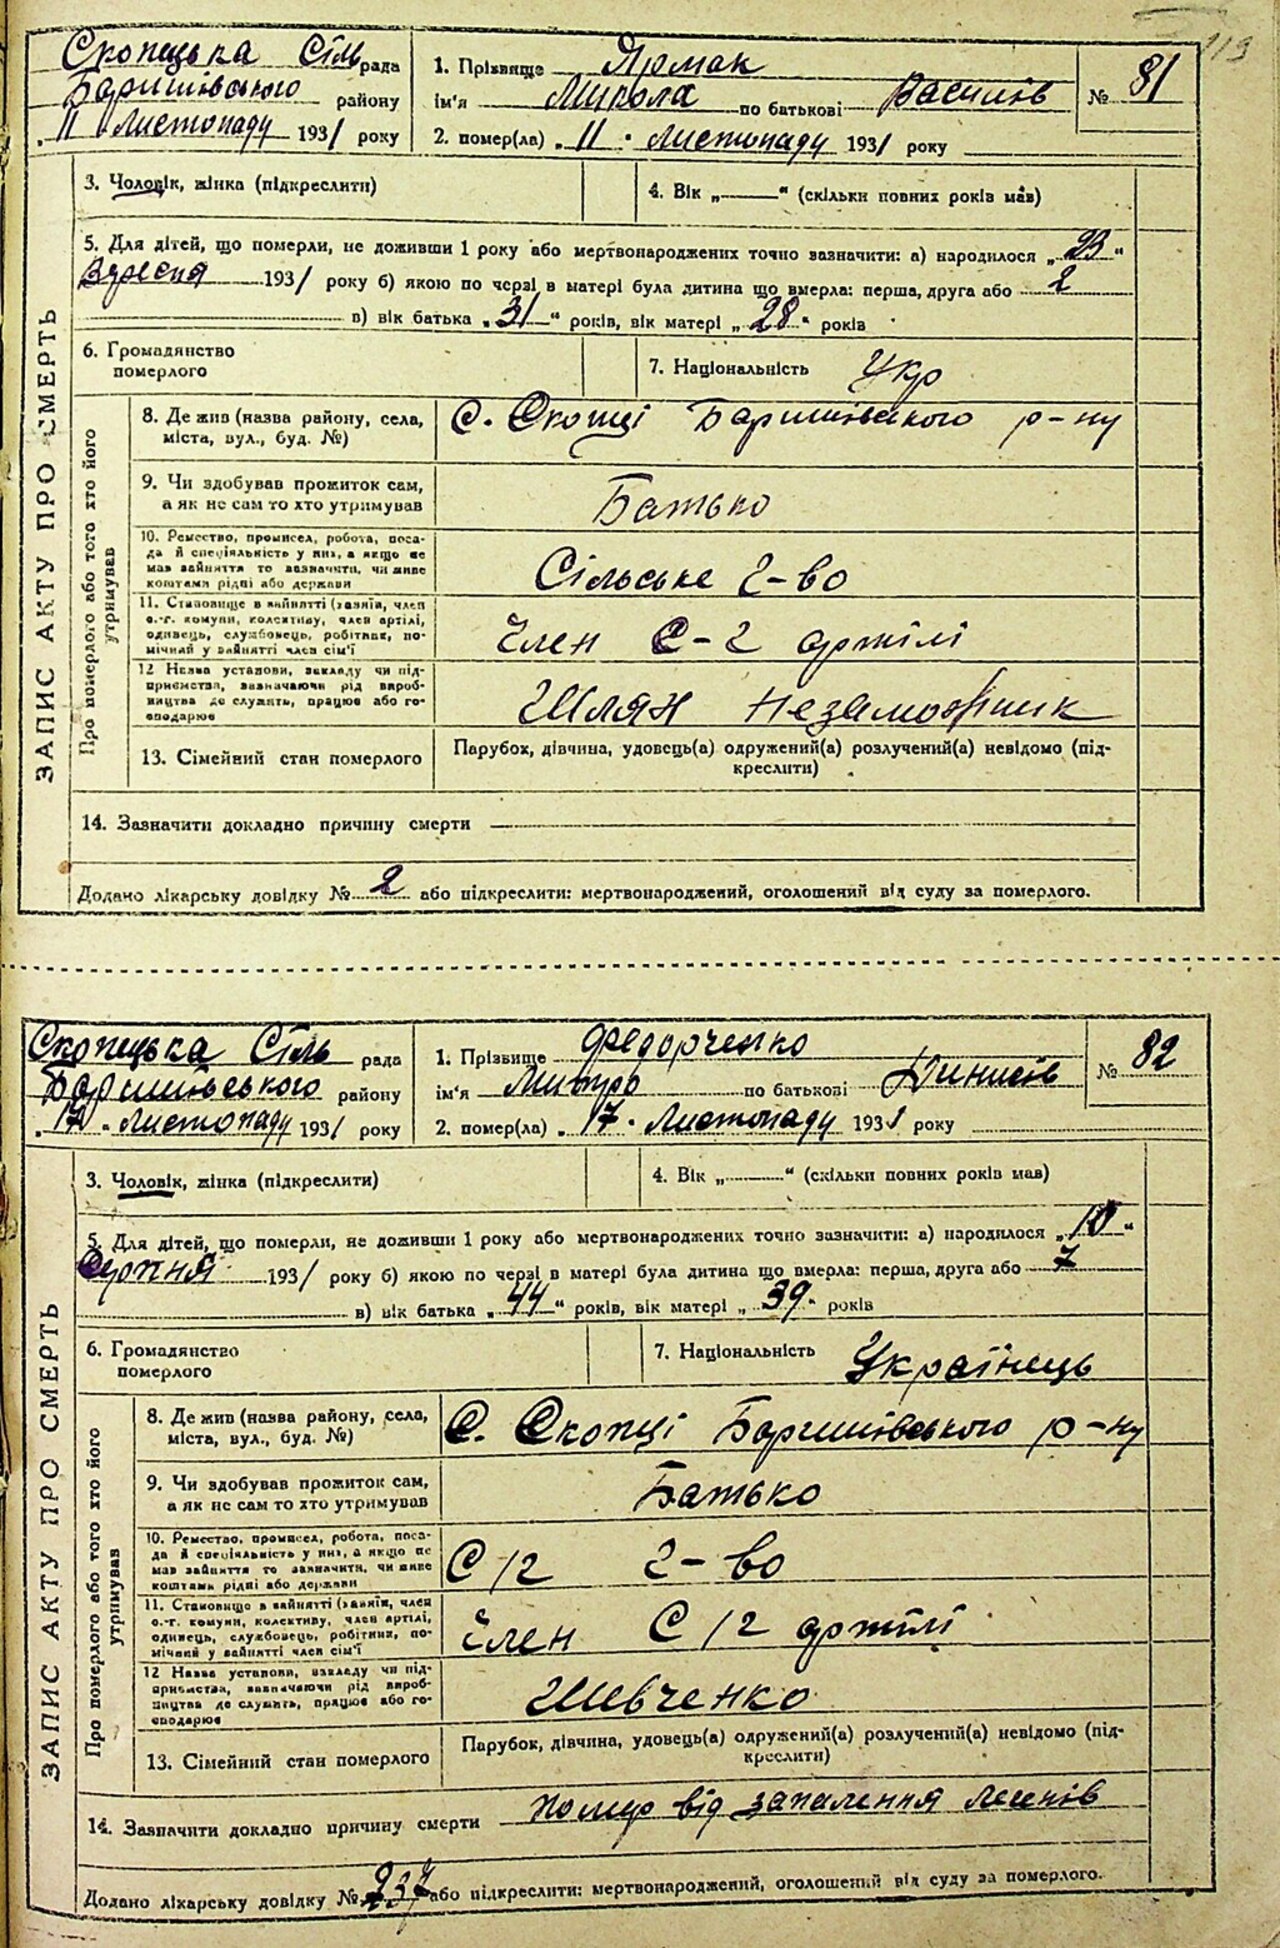 119
Скопецька Сіль рада
Баришівського району
„ 11 " Листопаду 1931 року
1. Прізвище Ярмак
ім'я Микола по батькові Василів
2. помер(ла) „ 11 " Листопаду 1931 року
№ 81
3. Чоловік, жінка (підкреслити)
4. Вік „ “ (скільки повних років мав)
5. Для дітей, що померли, не доживши 1 року або мертвонароджених точно зазначити: а) народилося „ 23 “
Вересня 1931 року б) якою по черзі в матері була дитина що вмерла: перша, друга або 2
в) вік батька „ 31 “ років, вік матері „ 28 “ років
6. Громадянство
померлого
7. Національність Укр
ЗАПИС АКТУ ПРО СМЕРТЬ
Про померлого або того хто його
утримував
8. Де жив (назва району, села,
міста, вул., буд. №)
С. Скопці Баришівського р-ну
9. Чи здобував прожиток сам,
а як не сам то хто утримував
Батько
10. Ремество, промисел, робота, поса-
да й спеціяльність у них, а якщо не
мав зайняття то зазначити, чи живе
коштами рідні або держави
Сільське г-во
11. Становище в зайнятті (хазяїн, член
с.-г. комуни, колективу, член артілі,
одинець, службовець, робітник, по-
мічний у зайнятті член сім'ї
Член С-г артілі
12 Назва установи, закладу чи під-
приємства, зазначаючи рід вироб-
ництва де служить, працює або го-
сподарює
Шлях Незаможник
13. Сімейний стан померлого
Парубок, дівчина, удовець(а) одружений(а) розлучений(а) невідомо (під-
креслити)
14. Зазначити докладно причину смерти
Додано лікарську довідку № 2 або підкреслити: мертвонароджений, оголошений від суду за померлого.
Скопецька Сіль рада
Баришівського району
„ 17 " Листопаду 1931 року
1. Прізвище Федорченко
ім'я Митро по батькові Динисів
2. помер(ла) „ 17 " Листопаду 1931 року
№ 82
3. Чоловік, жінка (підкреслити)
4. Вік „ “ (скільки повних років мав)
5. Для дітей, що померли, не доживши 1 року або мертвонароджених точно зазначити: а) народилося „ 10 “
Серпня 1931 року б) якою по черзі в матері була дитина що вмерла: перша, друга або 7
в) вік батька „ 44 “ років, вік матері „ 39 “ років
6. Громадянство
померлого
7. Національність Українець
ЗАПИС АКТУ ПРО СМЕРТЬ
Про померлого або того хто його
утримував
8. Де жив (назва району, села,
міста, вул., буд. №)
С. Скопці Баришівського р-ну
9. Чи здобував прожиток сам,
а як не сам то хто утримував
Батько
10. Ремество, промисел, робота, поса-
да й спеціяльність у них, а якщо не
мав зайняття то зазначити, чи живе
коштами рідні або держави
С/г г-во
11. Становище в зайнятті (хазяїн, член
с.-г. комуни, колективу, член артілі,
одинець, службовець, робітник, по-
мічний у зайнятті член сім'ї
Член С/г артілі
12 Назва установи, закладу чи під-
приємства, зазначаючи рід вироб-
ництва де служить, працює або го-
сподарює
Шевченко
13. Сімейний стан померлого
Парубок, дівчина, удовець(а) одружений(а) розлучений(а) невідомо (під-
креслити)
14. Зазначити докладно причину смерти Помер від запалення легенів
Додано лікарську довідку № 237 або підкреслити: мертвонароджений, оголошений від суду за померлого.